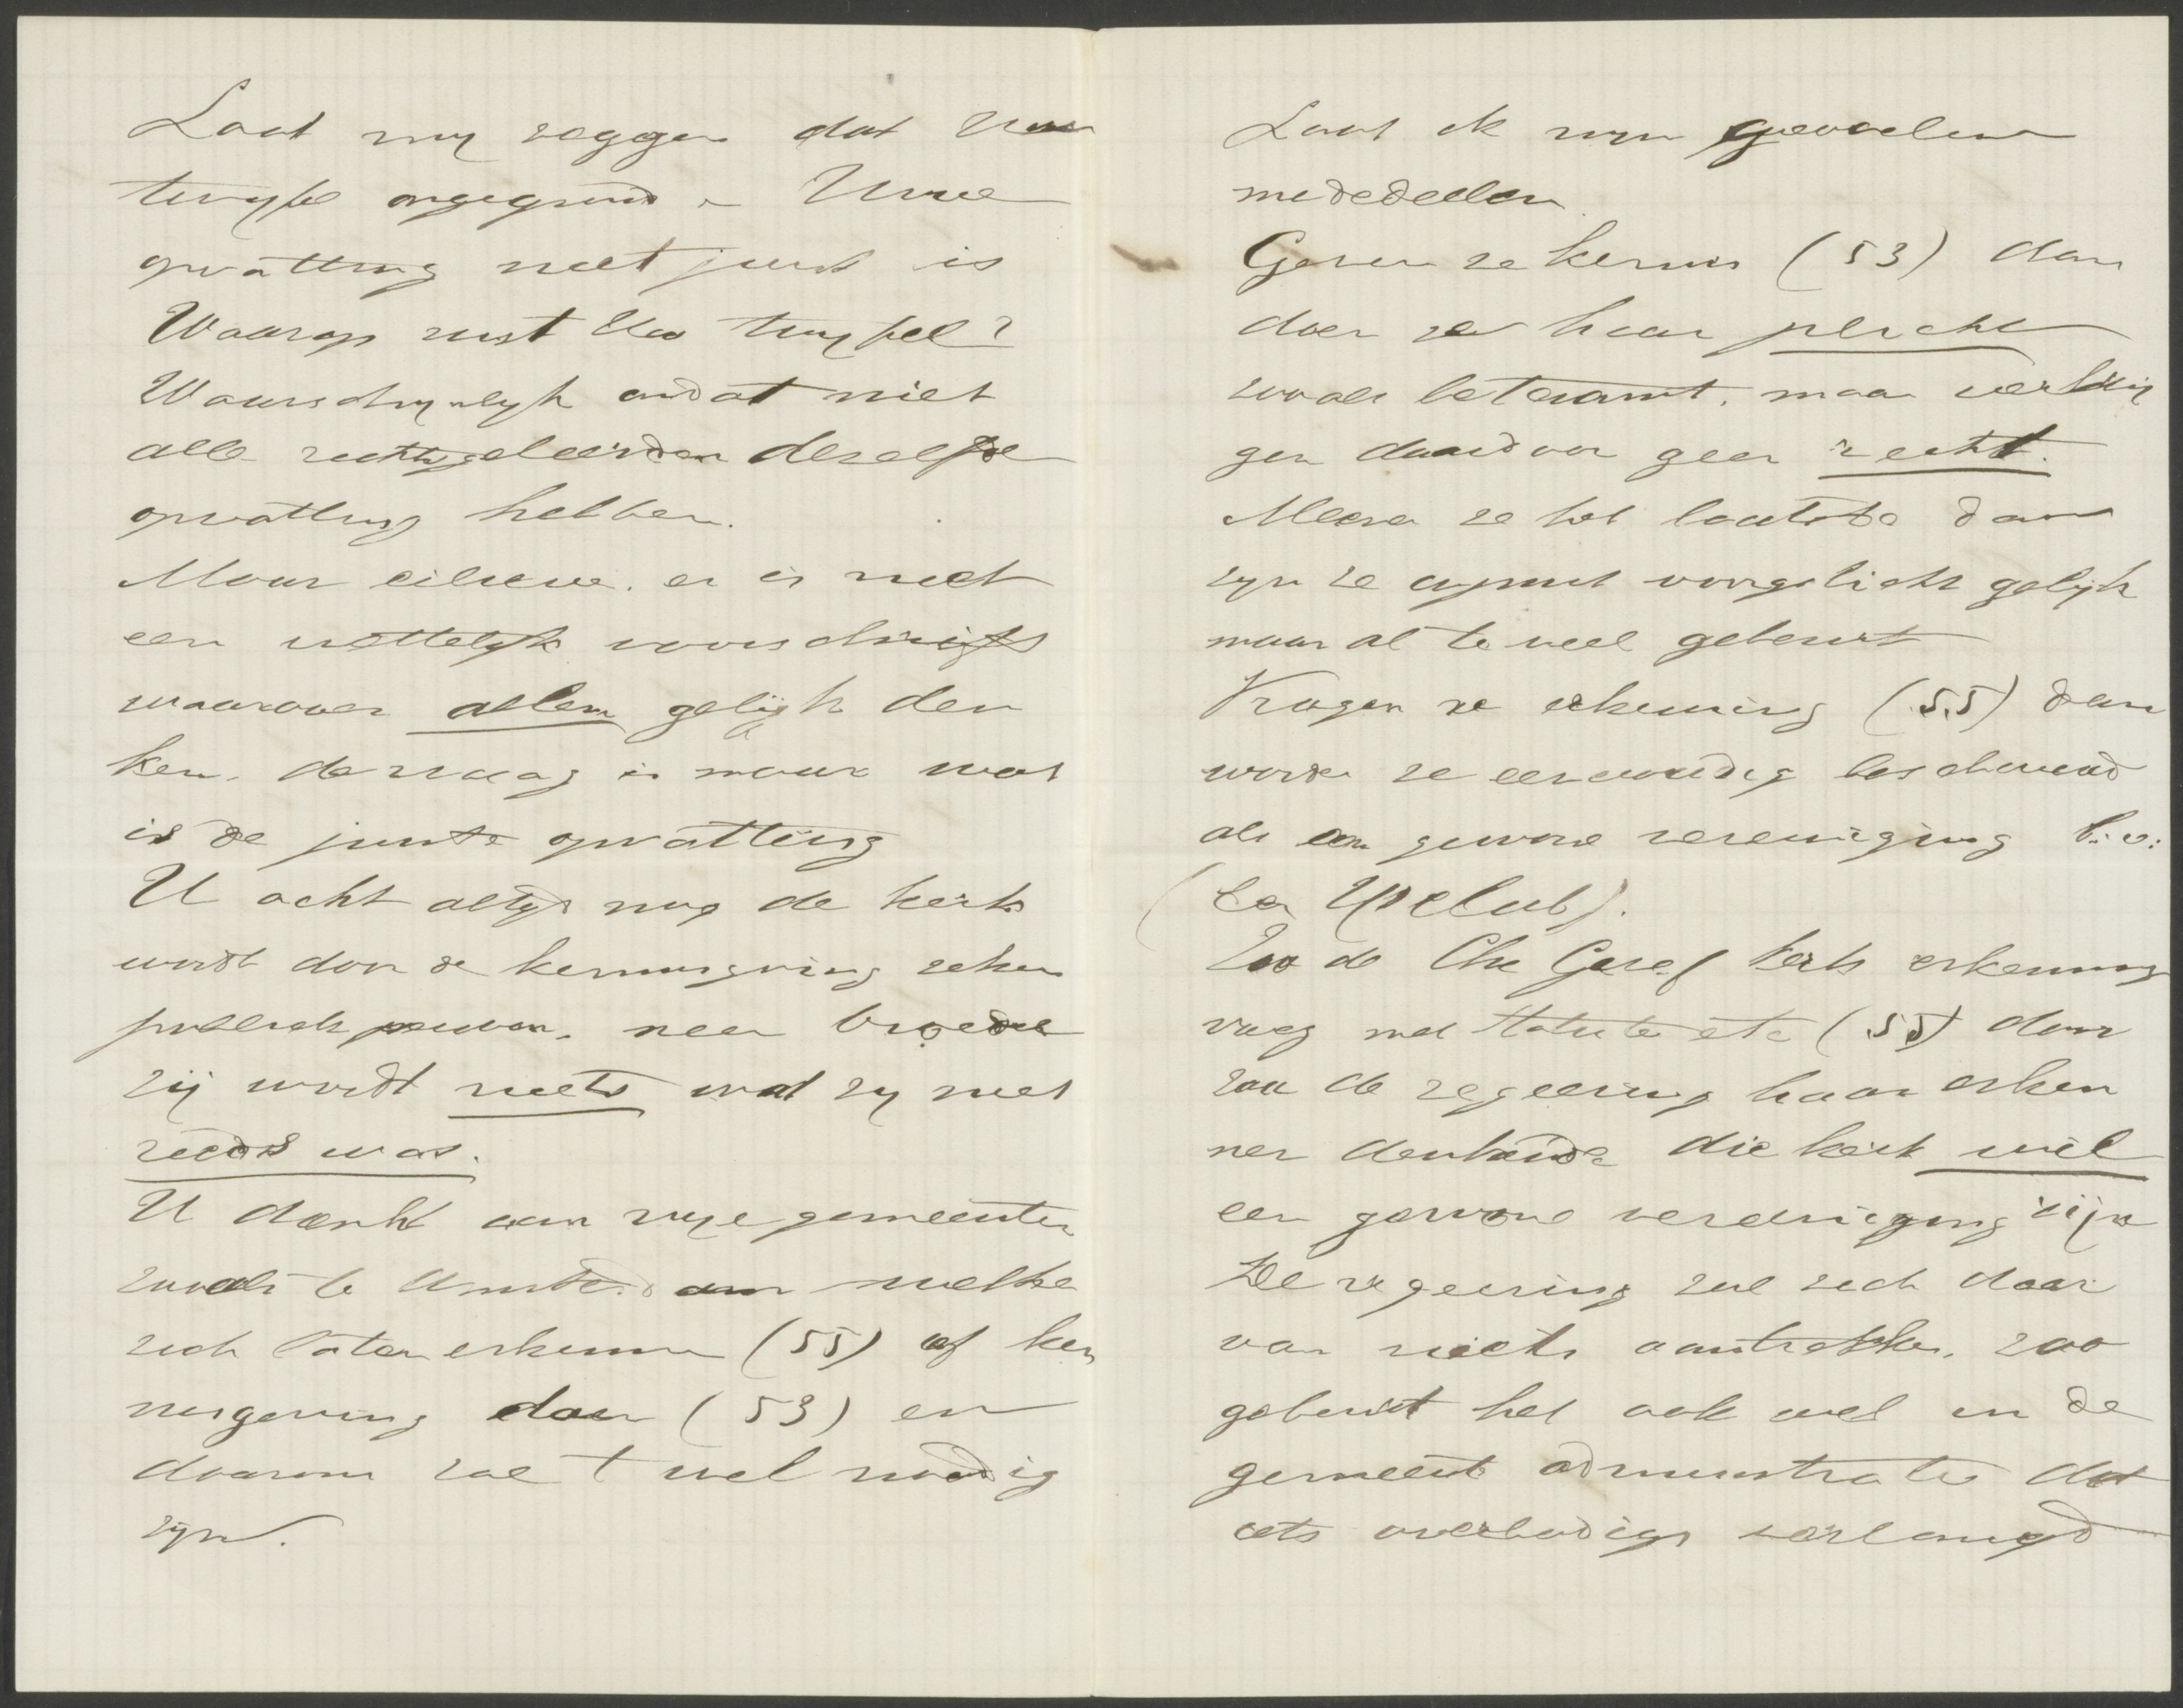 Laat mij zeggen dat Uw
twijfel ongegrond en Uwe
opvatting niet juist is
Waarop rust Uw twijfel?
Waarschijnlijk omdat niet
alle rechtsgeleerden dezelfde
opvatting hebben.
Maar eilieve. er is niet
een wettelijk voorschrift
waarover allen gelijk den
ken. de vraag is maar wat
is de juiste opvatting
U acht altijd nog de kerk
wordt door de kennisgeving zeker
publiek persoon. neen broeder
zij wordt niets wat zij niet
reeds was.
U denkt aan vrije gemeenten
zooals te Amsterdam welke
zich laten erkennen (55) of ken
nisgeving doen (53) en
daarom zal 't wel noodig
zijn.
Laat ik mijn gevoelen
mededeelen.
Geven ze kennis (53) dan
doen ze haar plicht
zooals betaamt. maar verkrij
gen daardoor geen recht.
Meenen ze het laatste dan
zijn ze onjuist voorgelicht gelijk
maar al te veel gebeurt
Vragen ze erkenning (55) dan
worden ze eenvoudig beschouwd
als een gewone vereeniging b.v:
(een IJsclub).
Zoo de Chr Geref kerk erkenning
vroeg met statuten etc (55) dan
zou de regeering haar erken
nen denkende die kerk wil
een gewone vereeniging zijn
De regeering zal zich daar
van niets aantrekken. zoo
gebeurt het ook wel in de
gemeente administratie dat
iets overbodigs verlangd